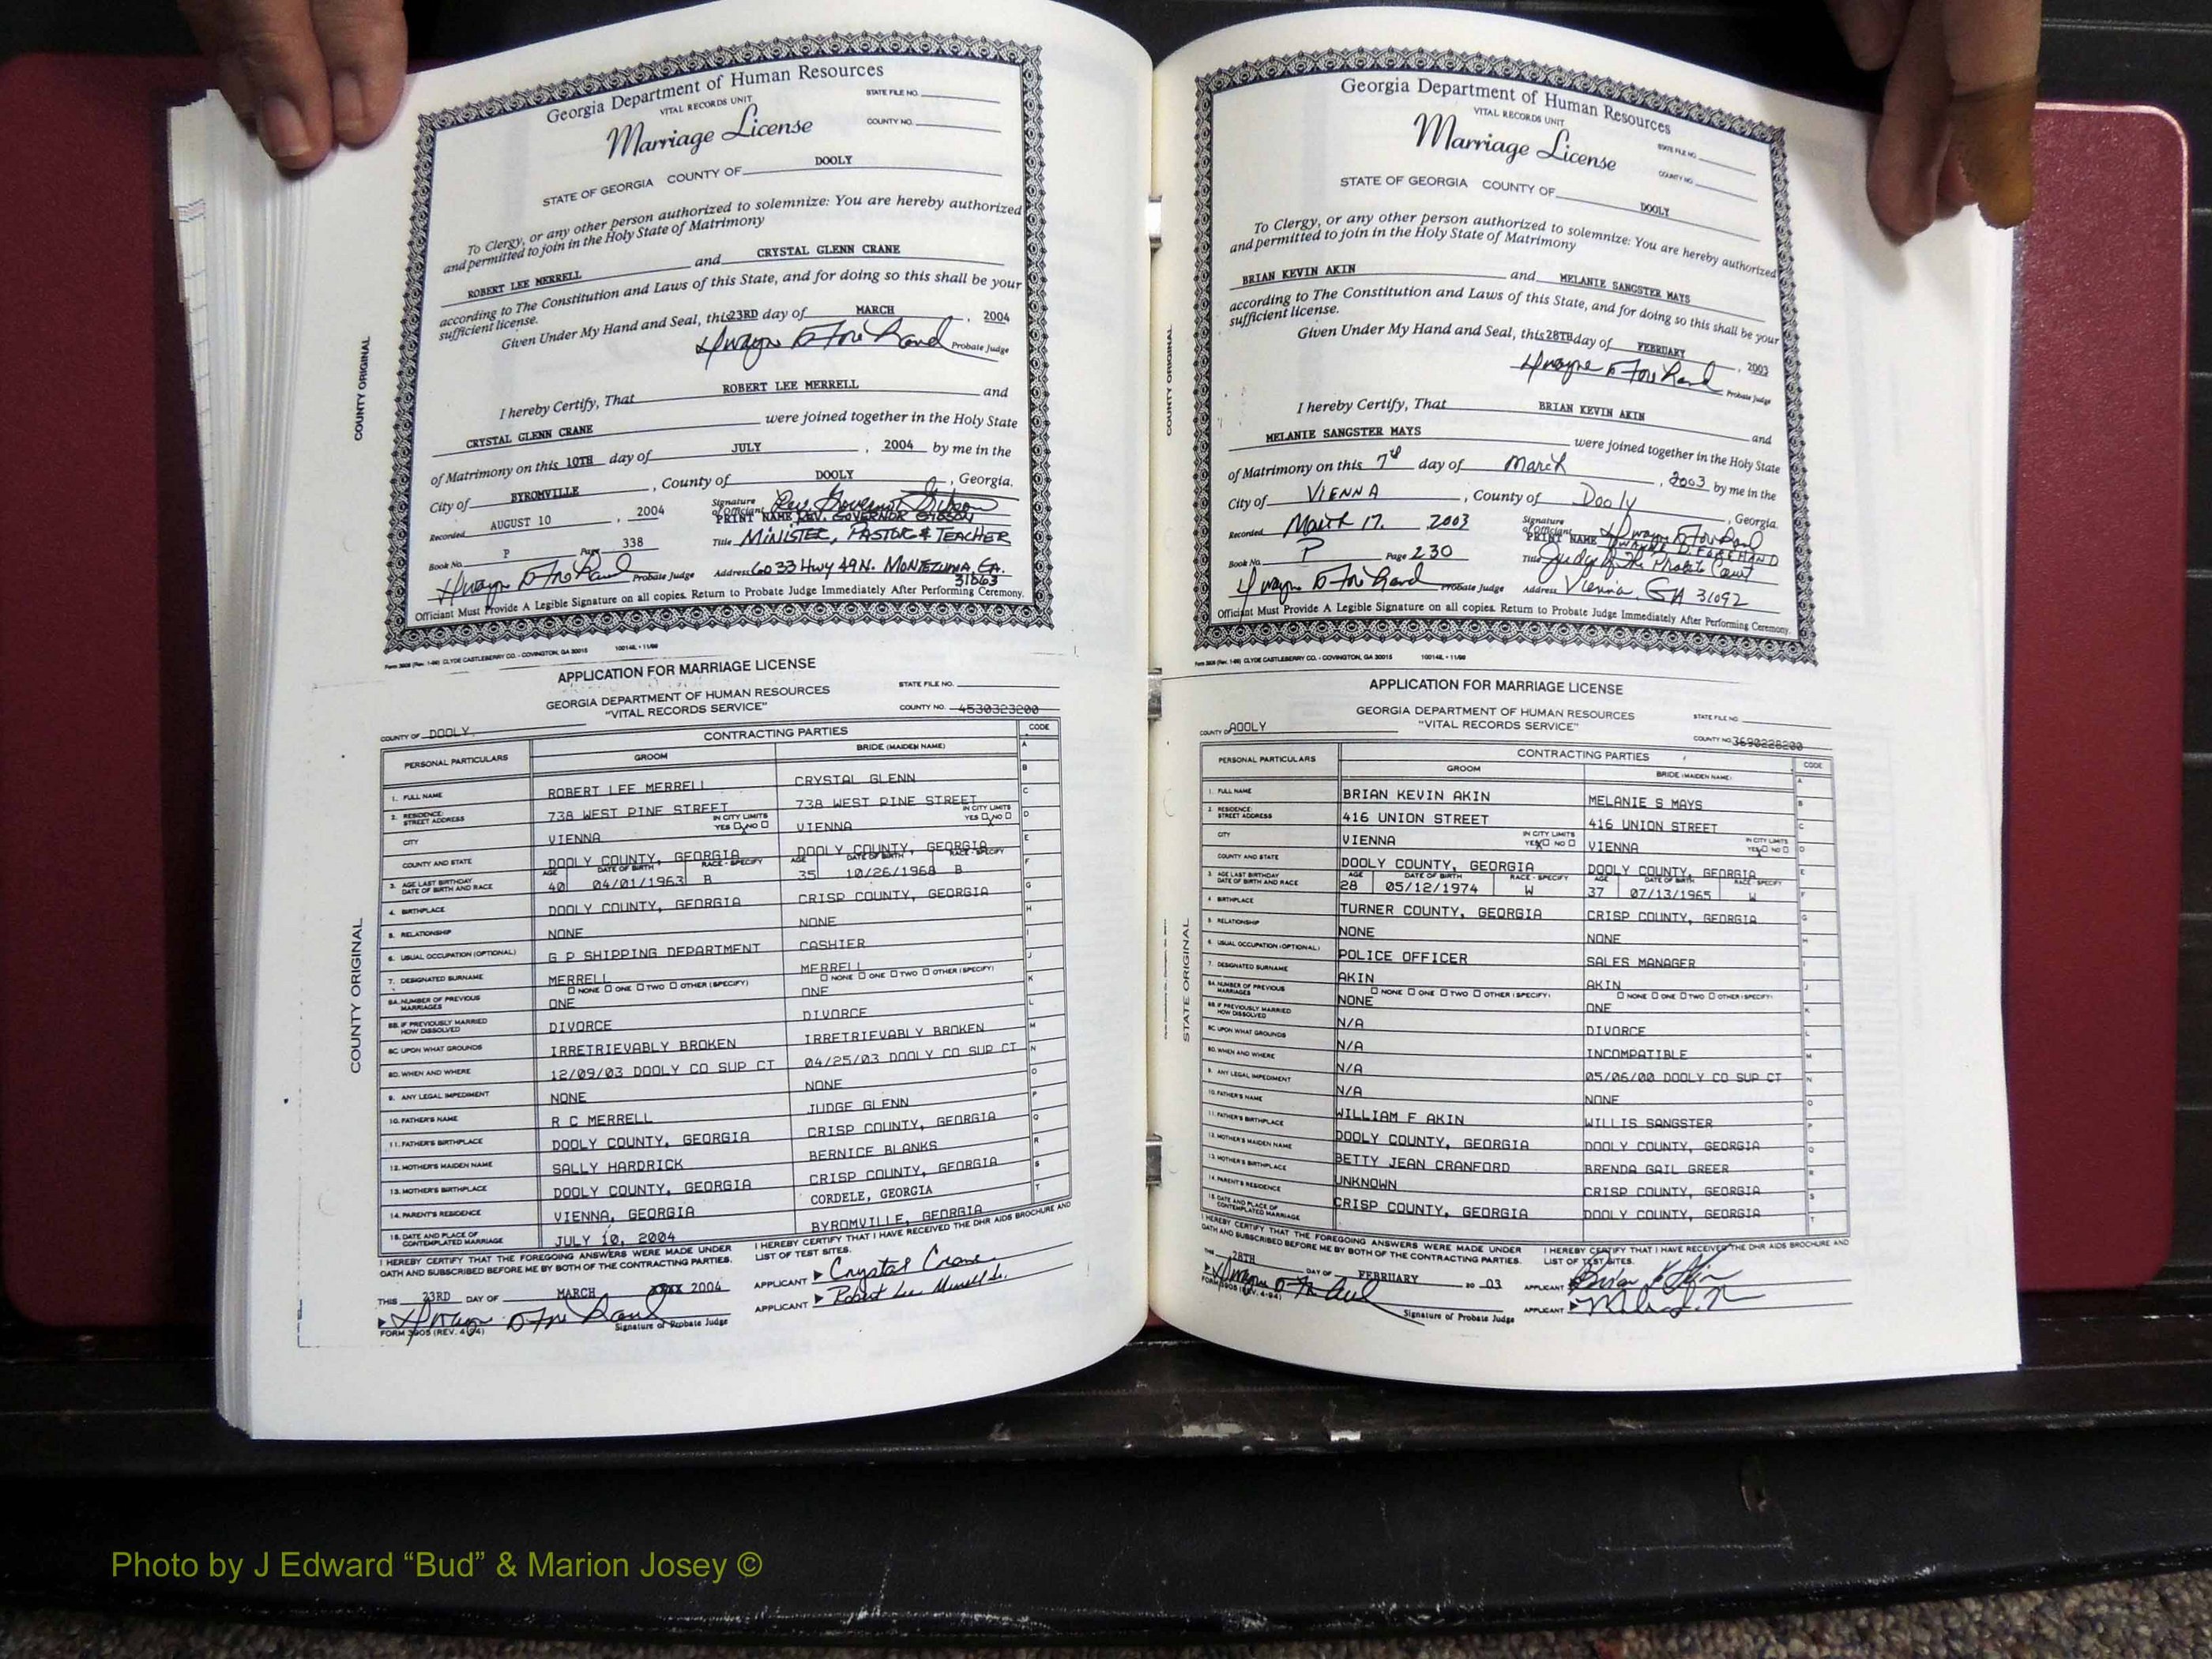 Georgia Department of Human Resources
VITAL RECORDS UNIT
STATE FILE NO.
Marriage License
COUNTY NO.
STATE OF GEORGIA COUNTY OF DOOLY
To Clergy, or any other person authorized to solemnize: You are hereby authorized
and permitted to join in the Holy State of Matrimony
ROBERT LEE MERRELL and CRYSTAL GLENN CRANE
according to The Constitution and Laws of this State, and for doing so this shall be your
sufficient license.
Given Under My Hand and Seal, this 23RD day of MARCH, 2004
Probate Judge
I hereby Certify, That ROBERT LEE MERRELL and
CRYSTAL GLENN CRANE were joined together in the Holy State
of Matrimony on this 10TH day of JULY, 2004 by me in the
City of BYROMVILLE, County of DOOLY, Georgia.
Signature of Officiant Rev. Governor Gibson
Recorded AUGUST 10, 2004
PRINT NAME REV. GOVERNOR GIBSON
Title MINISTER, PASTOR & TEACHER
Book No. P Page 338
Probate Judge
Address 6033 Hwy 49 N. MONTEZUMA, GA. 31063
Officiant Must Provide A Legible Signature on all copies. Return to Probate Judge Immediately After Performing Ceremony.
COUNTY ORIGINAL
CLYDE CASTLEBERRY CO. - COVINGTON, GA 30015
APPLICATION FOR MARRIAGE LICENSE
GEORGIA DEPARTMENT OF HUMAN RESOURCES
"VITAL RECORDS SERVICE"
STATE FILE NO.
COUNTY NO. 4530323200
COUNTY OF DOOLY
CONTRACTING PARTIES CODE
PERSONAL PARTICULARS GROOM BRIDE (MAIDEN NAME)
1. FULL NAME ROBERT LEE MERRELL CRYSTAL GLENN
2. RESIDENCE: STREET ADDRESS 738 WEST PINE STREET 738 WEST PINE STREET
CITY VIENNA IN CITY LIMITS YES NO VIENNA IN CITY LIMITS YES NO
COUNTY AND STATE DOOLY COUNTY, GEORGIA DOOLY COUNTY, GEORGIA
3. AGE LAST BIRTHDAY DATE OF BIRTH AND RACE AGE 40 DATE OF BIRTH 04/01/1963 RACE - SPECIFY B AGE 35 DATE OF BIRTH 10/26/1968 RACE - SPECIFY B
4. BIRTHPLACE DOOLY COUNTY, GEORGIA CRISP COUNTY, GEORGIA
5. RELATIONSHIP NONE NONE
6. USUAL OCCUPATION (OPTIONAL) G P SHIPPING DEPARTMENT CASHIER
7. DESIGNATED SURNAME MERRELL MERRELL
8A. NUMBER OF PREVIOUS MARRIAGES NONE ONE TWO OTHER (SPECIFY) ONE NONE ONE TWO OTHER (SPECIFY) ONE
8B. IF PREVIOUSLY MARRIED HOW DISSOLVED DIVORCE DIVORCE
8C. UPON WHAT GROUNDS IRRETRIEVABLY BROKEN IRRETRIEVABLY BROKEN
8D. WHEN AND WHERE 12/09/03 DOOLY CO SUP CT 04/25/03 DOOLY CO SUP CT
9. ANY LEGAL IMPEDIMENT NONE NONE
10. FATHER'S NAME R C MERRELL JUDGE GLENN
11. FATHER'S BIRTHPLACE DOOLY COUNTY, GEORGIA CRISP COUNTY, GEORGIA
12. MOTHER'S MAIDEN NAME SALLY HARDRICK BERNICE BLANKS
13. MOTHER'S BIRTHPLACE DOOLY COUNTY, GEORGIA CRISP COUNTY, GEORGIA
14. PARENT'S RESIDENCE VIENNA, GEORGIA CORDELE, GEORGIA
15. DATE AND PLACE OF CONTEMPLATED MARRIAGE JULY 10, 2004 BYROMVILLE, GEORGIA
I HEREBY CERTIFY THAT THE FOREGOING ANSWERS WERE MADE UNDER
OATH AND SUBSCRIBED BEFORE ME BY BOTH OF THE CONTRACTING PARTIES.
I HEREBY CERTIFY THAT I HAVE RECEIVED THE DHR AIDS BROCHURE AND
LIST OF TEST SITES.
THIS 23RD DAY OF MARCH 2004
APPLICANT Crystal Crane
APPLICANT
Signature of Probate Judge
FORM 3905 (REV. 4-94)
COUNTY ORIGINAL
Georgia Department of Human Resources
VITAL RECORDS UNIT
STATE FILE NO.
Marriage License
COUNTY NO.
STATE OF GEORGIA COUNTY OF DOOLY
To Clergy, or any other person authorized to solemnize: You are hereby authorized
and permitted to join in the Holy State of Matrimony
BRIAN KEVIN AKIN and MELANIE SANGSTER MAYS
according to The Constitution and Laws of this State, and for doing so this shall be your
sufficient license.
Given Under My Hand and Seal, this 28TH day of FEBRUARY, 2003
Probate Judge
I hereby Certify, That BRIAN KEVIN AKIN and
MELANIE SANGSTER MAYS were joined together in the Holy State
of Matrimony on this 7th day of March, 2003 by me in the
City of VIENNA, County of Dooly, Georgia.
Signature of Officiant
Recorded March 17, 2003
PRINT NAME DWAYNE D. FOREHAND
Title Judge of the Probate Court
Book No. P Page 230
Probate Judge
Address Vienna, GA 31092
Officiant Must Provide A Legible Signature on all copies. Return to Probate Judge Immediately After Performing Ceremony.
COUNTY ORIGINAL
CLYDE CASTLEBERRY CO. - COVINGTON, GA 30015
APPLICATION FOR MARRIAGE LICENSE
GEORGIA DEPARTMENT OF HUMAN RESOURCES
"VITAL RECORDS SERVICE"
STATE FILE NO.
COUNTY NO. 3690228200
COUNTY OF DOOLY
CONTRACTING PARTIES CODE
PERSONAL PARTICULARS GROOM BRIDE (MAIDEN NAME)
1. FULL NAME BRIAN KEVIN AKIN MELANIE S MAYS
2. RESIDENCE: STREET ADDRESS 416 UNION STREET 416 UNION STREET
CITY VIENNA IN CITY LIMITS YES NO VIENNA IN CITY LIMITS YES NO
COUNTY AND STATE DOOLY COUNTY, GEORGIA DOOLY COUNTY, GEORGIA
3. AGE LAST BIRTHDAY DATE OF BIRTH AND RACE AGE 28 DATE OF BIRTH 05/12/1974 RACE - SPECIFY W AGE 37 DATE OF BIRTH 07/13/1965 RACE - SPECIFY W
4. BIRTHPLACE TURNER COUNTY, GEORGIA CRISP COUNTY, GEORGIA
5. RELATIONSHIP NONE NONE
6. USUAL OCCUPATION (OPTIONAL) POLICE OFFICER SALES MANAGER
7. DESIGNATED SURNAME AKIN AKIN
8A. NUMBER OF PREVIOUS MARRIAGES NONE ONE TWO OTHER (SPECIFY) NONE NONE ONE TWO OTHER (SPECIFY) ONE
8B. IF PREVIOUSLY MARRIED HOW DISSOLVED N/A DIVORCE
8C. UPON WHAT GROUNDS N/A INCOMPATIBLE
8D. WHEN AND WHERE N/A 05/06/00 DOOLY CO SUP CT
9. ANY LEGAL IMPEDIMENT N/A NONE
10. FATHER'S NAME WILLIAM F AKIN WILLIS SANGSTER
11. FATHER'S BIRTHPLACE DOOLY COUNTY, GEORGIA DOOLY COUNTY, GEORGIA
12. MOTHER'S MAIDEN NAME BETTY JEAN CRANFORD BRENDA GAIL GREER
13. MOTHER'S BIRTHPLACE UNKNOWN CRISP COUNTY, GEORGIA
14. PARENT'S RESIDENCE CRISP COUNTY, GEORGIA DOOLY COUNTY, GEORGIA
15. DATE AND PLACE OF CONTEMPLATED MARRIAGE
I HEREBY CERTIFY THAT THE FOREGOING ANSWERS WERE MADE UNDER
OATH AND SUBSCRIBED BEFORE ME BY BOTH OF THE CONTRACTING PARTIES.
I HEREBY CERTIFY THAT I HAVE RECEIVED THE DHR AIDS BROCHURE AND
LIST OF TEST SITES.
THIS 28TH DAY OF FEBRUARY 20 03
APPLICANT
APPLICANT
Signature of Probate Judge
FORM 3905 (REV. 4-94)
STATE ORIGINAL
Photo by J Edward “Bud” & Marion Josey ©